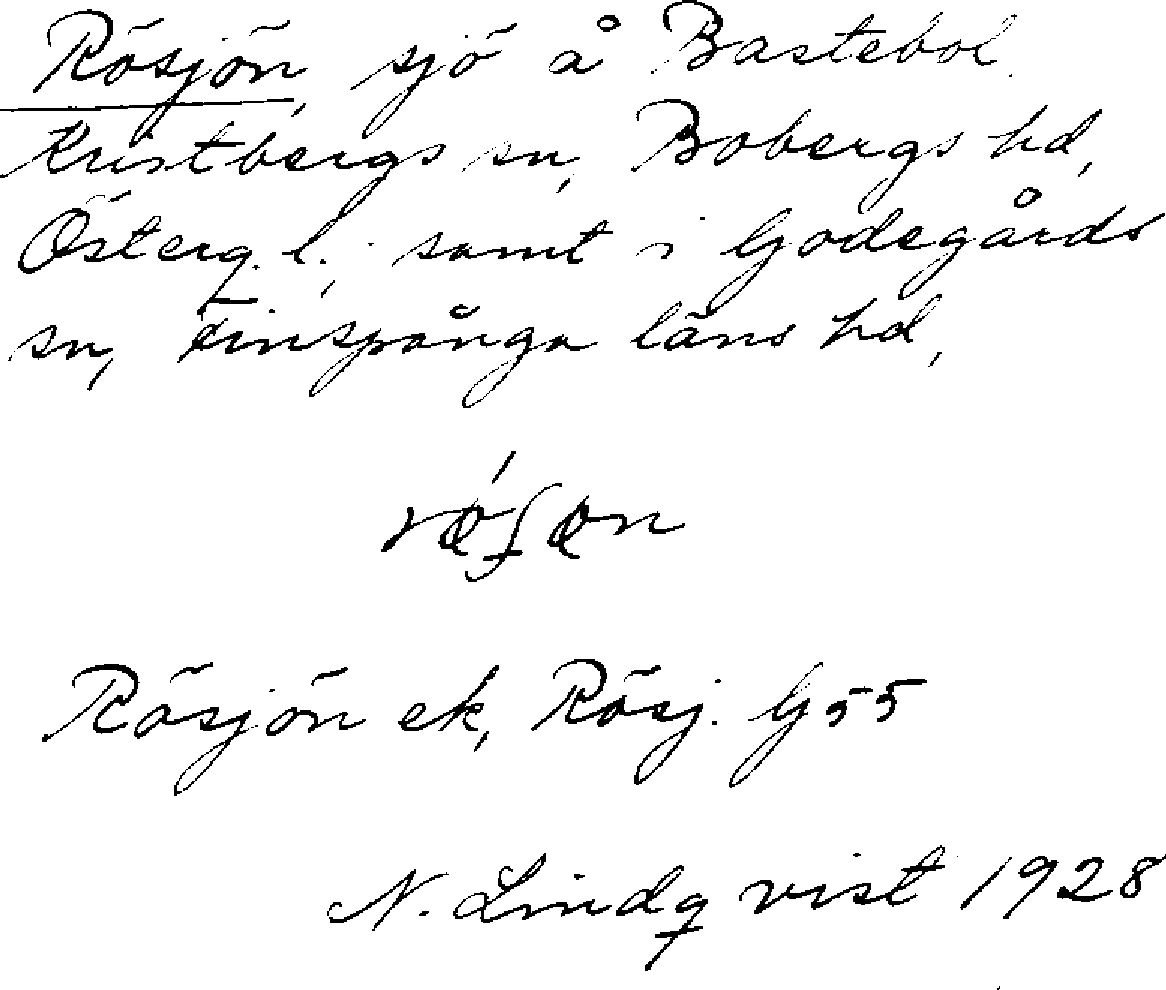 Rösjön, sjö å Bastebol
Kristbergs sn, Bobergs hd,
Österg. l.; samt i Godegårds
sn, Finspånga läns hd,
Rösjön ek, Rösj. G55
N. Lindqvist 1928